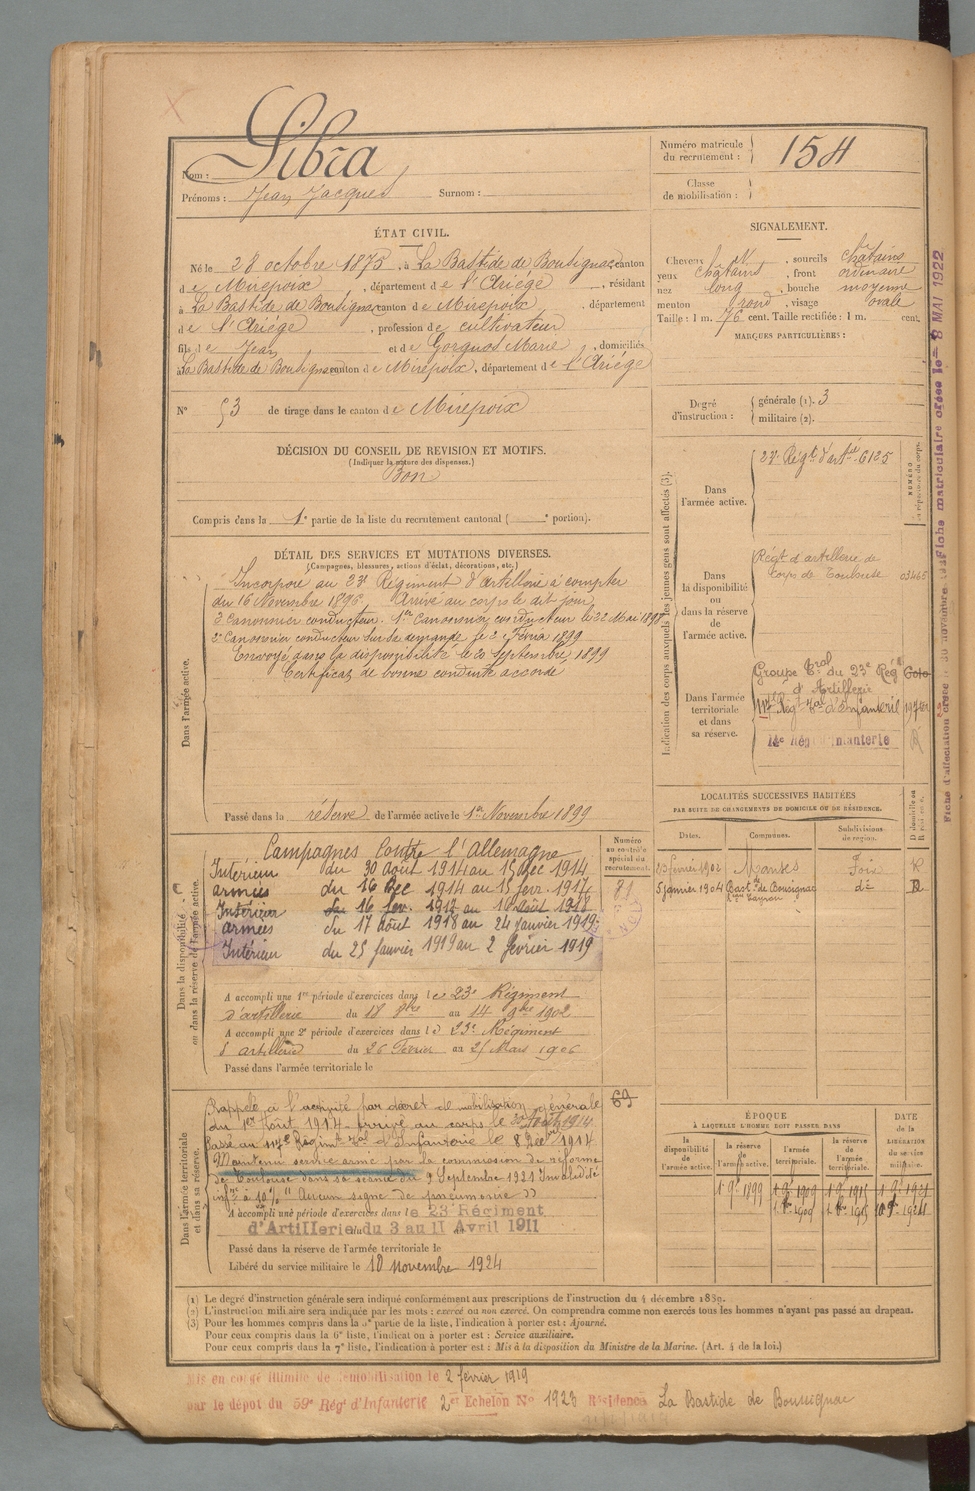 Nom : Libra
Prénoms : Jean Jacques Surnom :
Numéro matricule du recrutement : 154
Classe de mobilisation :
ÉTAT CIVIL.
Né le 28 octobre 1875, à La Bastide de Bousignac, canton
de Mirepoix, département de l'Ariége, résidant
à La Bastide de Bousignac, canton de Mirepoix, département
de l'Ariége, profession de cultivateur
fils de Jean et de Gorguos Marie, domiciliés
à La Bastide de Bousignac, canton de Mirepoix, département de l'Ariége
N° 53 de tirage dans le canton de Mirepoix
SIGNALEMENT.
Cheveux N, sourcils châtains
yeux châtains, front ordinaire
nez long, bouche moyenne
menton rond, visage ovale
Taille : 1 m. 76 cent. Taille rectifiée : 1 m. cent.
MARQUES PARTICULIÈRES :
Degré d'instruction : générale (1). 3
militaire (2).
DÉCISION DU CONSEIL DE REVISION ET MOTIFS.
(Indiquer la nature des dispenses.)
Bon
Compris dans la 1e partie de la liste du recrutement cantonal ( e portion).
DÉTAIL DES SERVICES ET MUTATIONS DIVERSES.
(Campagnes, blessures, actions d'éclat, décorations, etc.)
Dans l'armée active.
Incorporé au 23e Régiment d'artillerie à compter
du 16 Novembre 1896. Arrivé au corps le dit jour
2e Canonnier conducteur. 1er Canonnier conducteur le 22 Mai 1898
2e Canonnier conducteur sur sa demande le 2 Février 1899
Envoyé dans la disponibilité le 20 Septembre 1899
Certificat de bonne conduite accordé
Passé dans la réserve de l'armée active le 1er Novembre 1899
Indication des corps auxquels les jeunes gens sont affectés (3).
Dans l'armée active.
23e Régt d'artie 6125
NUMÉRO
Dans la disponibilité ou dans la réserve de l'armée active.
Régt d'artillerie de
Corps de Toulouse 03465
Dans l'armée territoriale et dans sa réserve.
Groupe Tral du 23e Régt
d'Artillerie
117e Régt Tal d'Infanterie
LOCALITÉS SUCCESSIVES HABITÉES
PAR SUITE DE CHANGEMENTS DE DOMICILE OU DE RÉSIDENCE.
Dates. Communes. Subdivisions de région. D domicile ou R résidence.
Février 1902 Manses Foix R
5 janvier 1904 Bastde de Bousignac do R
Dans la disponibilité ou dans la réserve de l'armée active.
Numéro au contrôle spécial du recrutement.
81
Campagnes Contre l'Allemagne
Intérieur du 30 Août 1914 au 15 Dec 1914
armées du 16 Dec 1914 au 15 fevr. 1917
Intérieur du 16 fev. 1917 au 16 août 1918
armées du 17 Août 1918 au 24 janvier 1919
Intérieur du 25 janvier 1919 au 2 février 1919
A accompli une 1re période d'exercices dans le 23e Régiment
d'artillerie du 18 8bre au 14 9bre 1902
A accompli une 2e période d'exercices dans le 23e Régiment
d'artillerie du 26 Février au 25 Mars 1906
Passé dans l'armée territoriale le
Dans l'armée territoriale et dans sa réserve.
69
Rappelé à l'activité par décret de mobilisation générale
du 1er Août 1914 arrivé au corps le 30 Août 1914
Passé au 117e Régimt Tal d'Infanterie le 8 Dec 1914
Maintenu service armé par la commission de réforme
de Toulouse dans sa séance du 9 Septembre 1921 Invalidité
infre à 10% "Aucun signe de pneumonie"
A accompli une période d'exercices dans le 23e Régiment
d'Artillerie du 3 au 11 Avril 1911
Passé dans la réserve de l'armée territoriale le
Libéré du service militaire le 10 Novembre 1924
ÉPOQUE
À LAQUELLE L'HOMME DOIT PASSER DANS
DATE de la LIBÉRATION du service militaire.
la disponibilité de l'armée active. la réserve de l'armée active. l'armée territoriale. la réserve de l'armée territoriale.
(1) Le degré d'instruction générale sera indiqué conformément aux prescriptions de l'instruction du 4 décembre 1889.
(2) L'instruction militaire sera indiquée par les mots : exercé ou non exercé. On comprendra comme non exercés tous les hommes n'ayant pas passé au drapeau.
(3) Pour les hommes compris dans la 5e partie de la liste, l'indication à porter est : Ajourné.
Pour ceux compris dans la 6e liste, l'indication à porter est : Service auxiliaire.
Pour ceux compris dans la 7e liste, l'indication à porter est : Mis à la disposition du Ministre de la Marine. (Art. 4 de la loi.)
Mis en congé illimité de démobilisation le 2 février 1919
par le dépot du 59e Régt d'Infanterie 2e Echelon No 1923 Résidence La Bastide de Bousignac
Fiche matriculaire créée le 8 MAI 1922